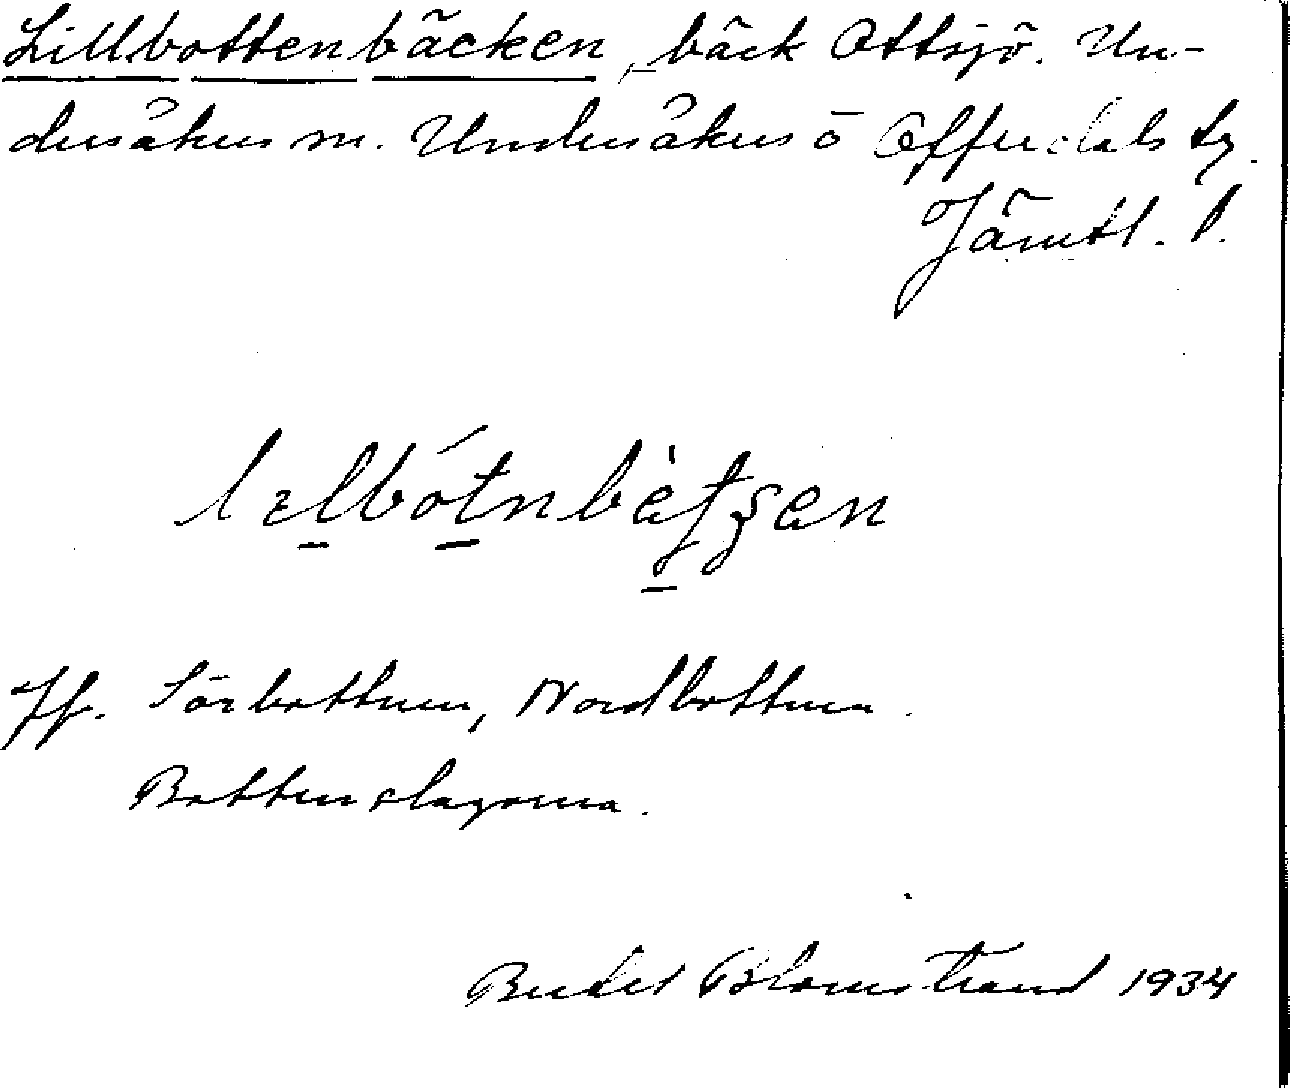 Lillbottenbäcken, bäck Ottsjö. Un-
dersåkers sn. Undersåkers o Offerdals tg.
Jämtl. l.
lɪlbótnbètʂen
Jf. Sörbottnen, Nordbottnen.
Bottenslagorna.
Bertel Blomstrand 1934